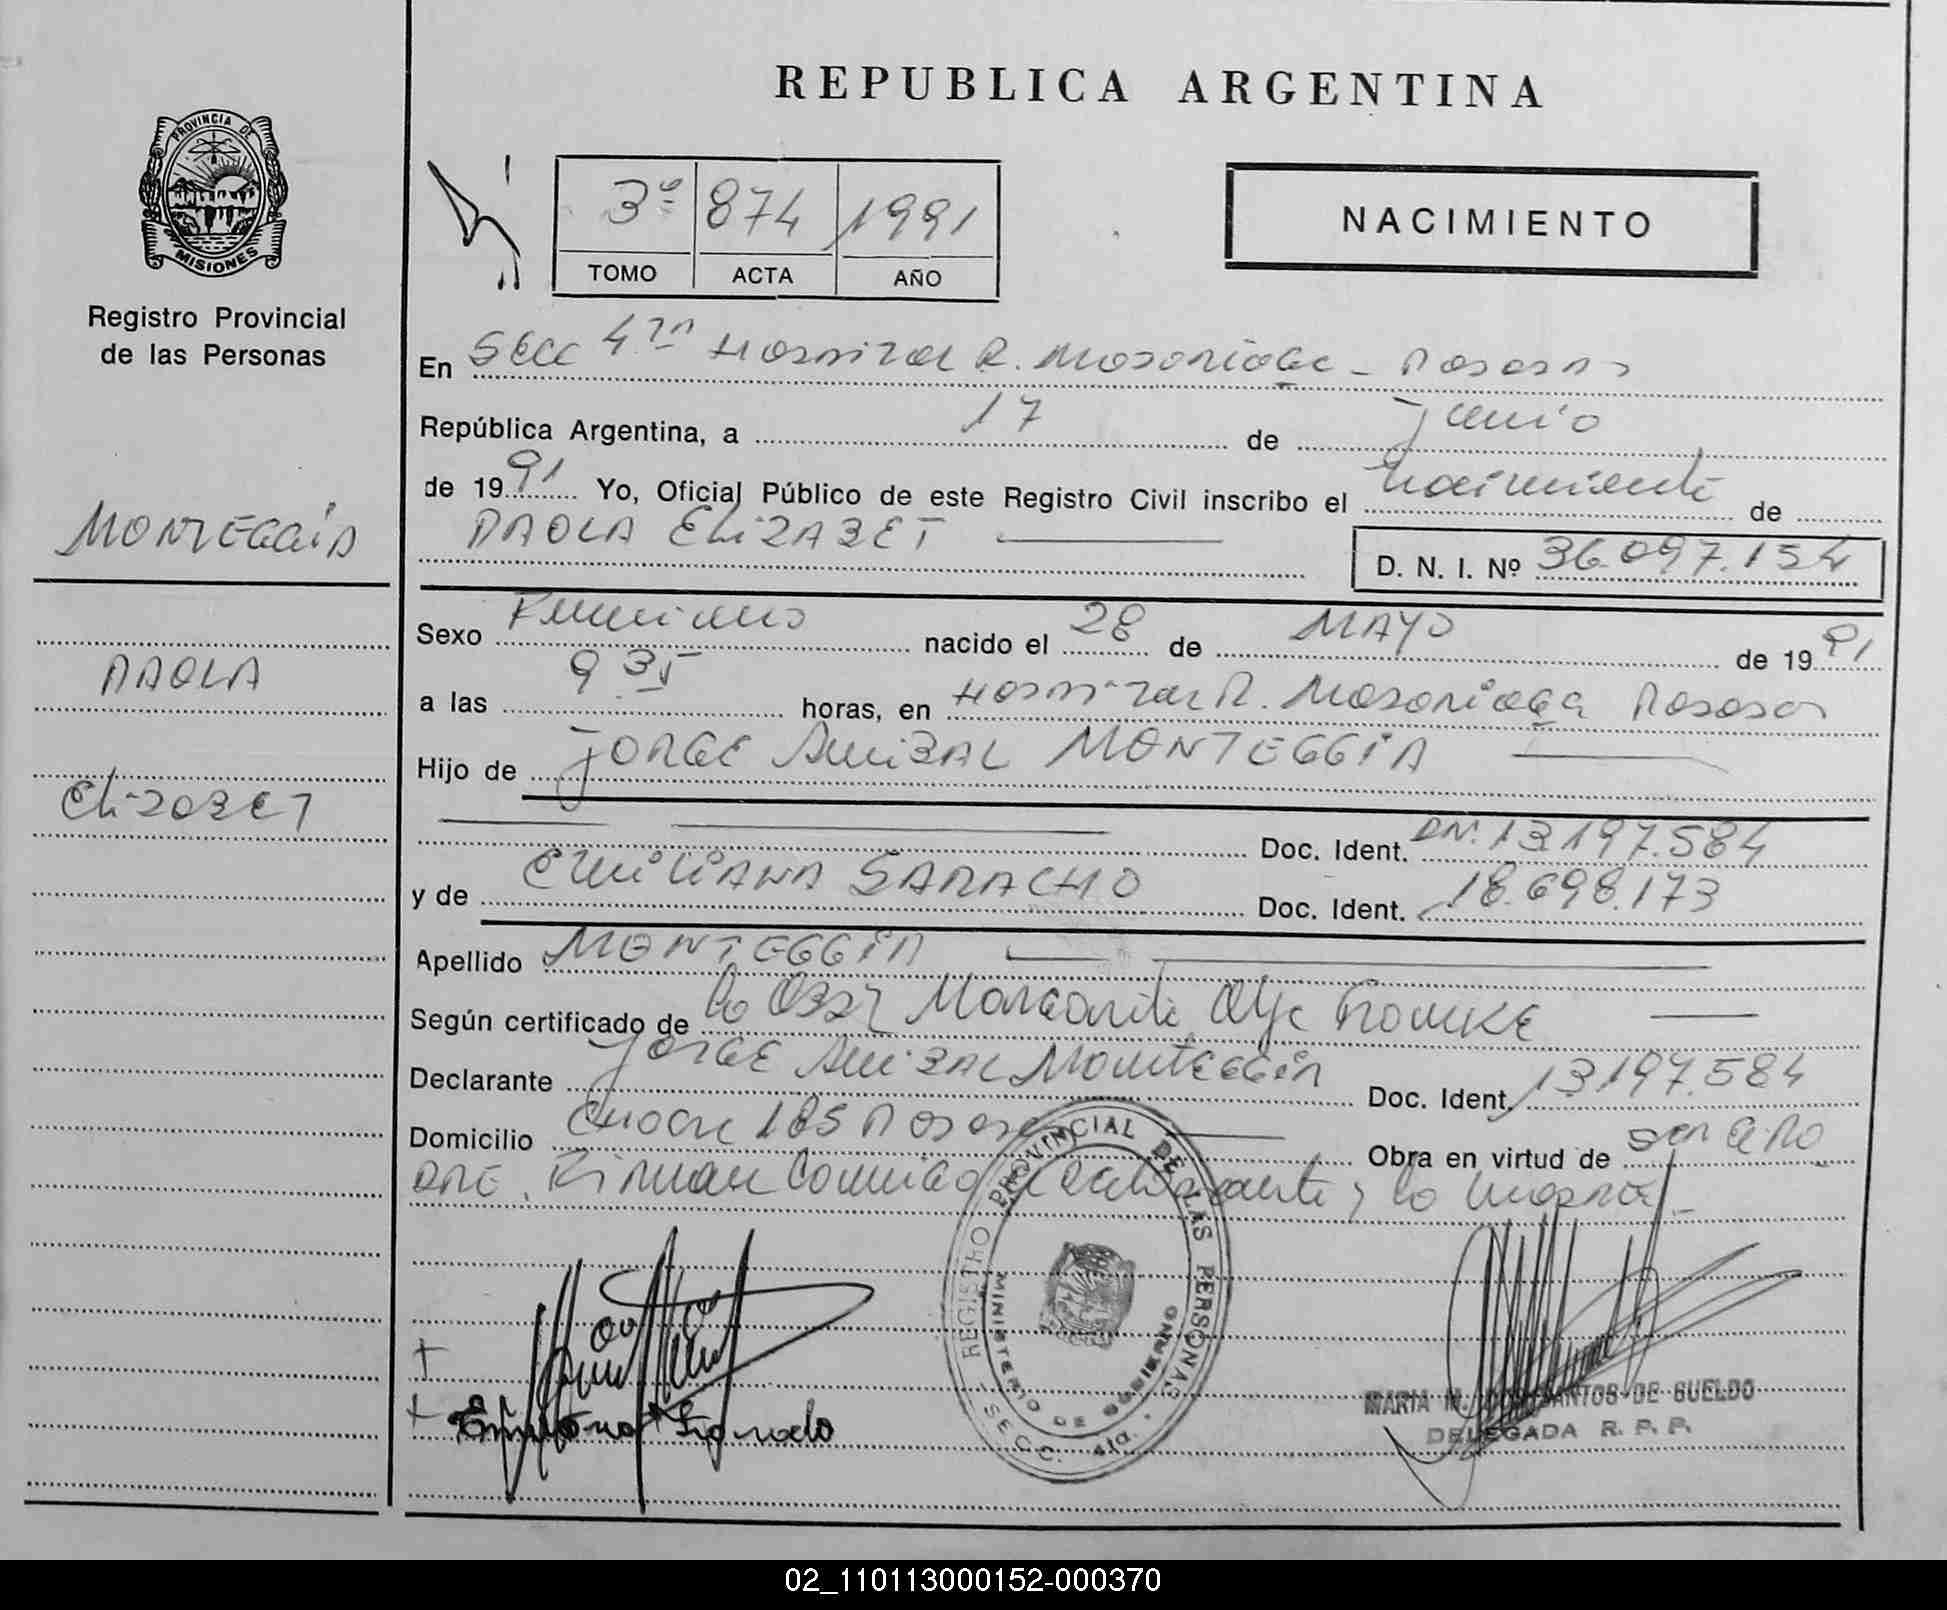 REPUBLICA ARGENTINA
PROVINCIA DE
MISIONES
Registro Provincial
de las Personas
3º 874 1991
TOMO ACTA AÑO
NACIMIENTO
En Secc 4ta Hospital R. Madariaga - Posadas
República Argentina, a 17 de Junio
de 1991 Yo, Oficial Público de este Registro Civil inscribo el nacimiento de
PAOLA ELIZABET
D. N. I. Nº 36.097.154
MONTEGGIA
PAOLA
ELIZABET
Sexo Femenino nacido el 28 de MAYO de 1991
a las 9.35 horas, en Hospital R. Madariaga Posadas
Hijo de JORGE ANIBAL MONTEGGIA
Doc. Ident. DNI. 13.197.584
y de EMILIANA SARACHO Doc. Ident. 18.698.173
Apellido MONTEGGIA
Según certificado de la Obst Margarita Fromke
Declarante JORGE ANIBAL MONTEGGIA Doc. Ident. 13.197.584
Domicilio 185 Posadas Obra en virtud de ser el PA
DRE. Firman conmigo el declarante y la madre
REGISTRO PROVINCIAL DE LAS PERSONAS
MINISTERIO DE GOBIERNO
SECC. 4ta.
MARIA M. SANTOS DE GUELDO
DELEGADA R. P. P.
02_110113000152-000370